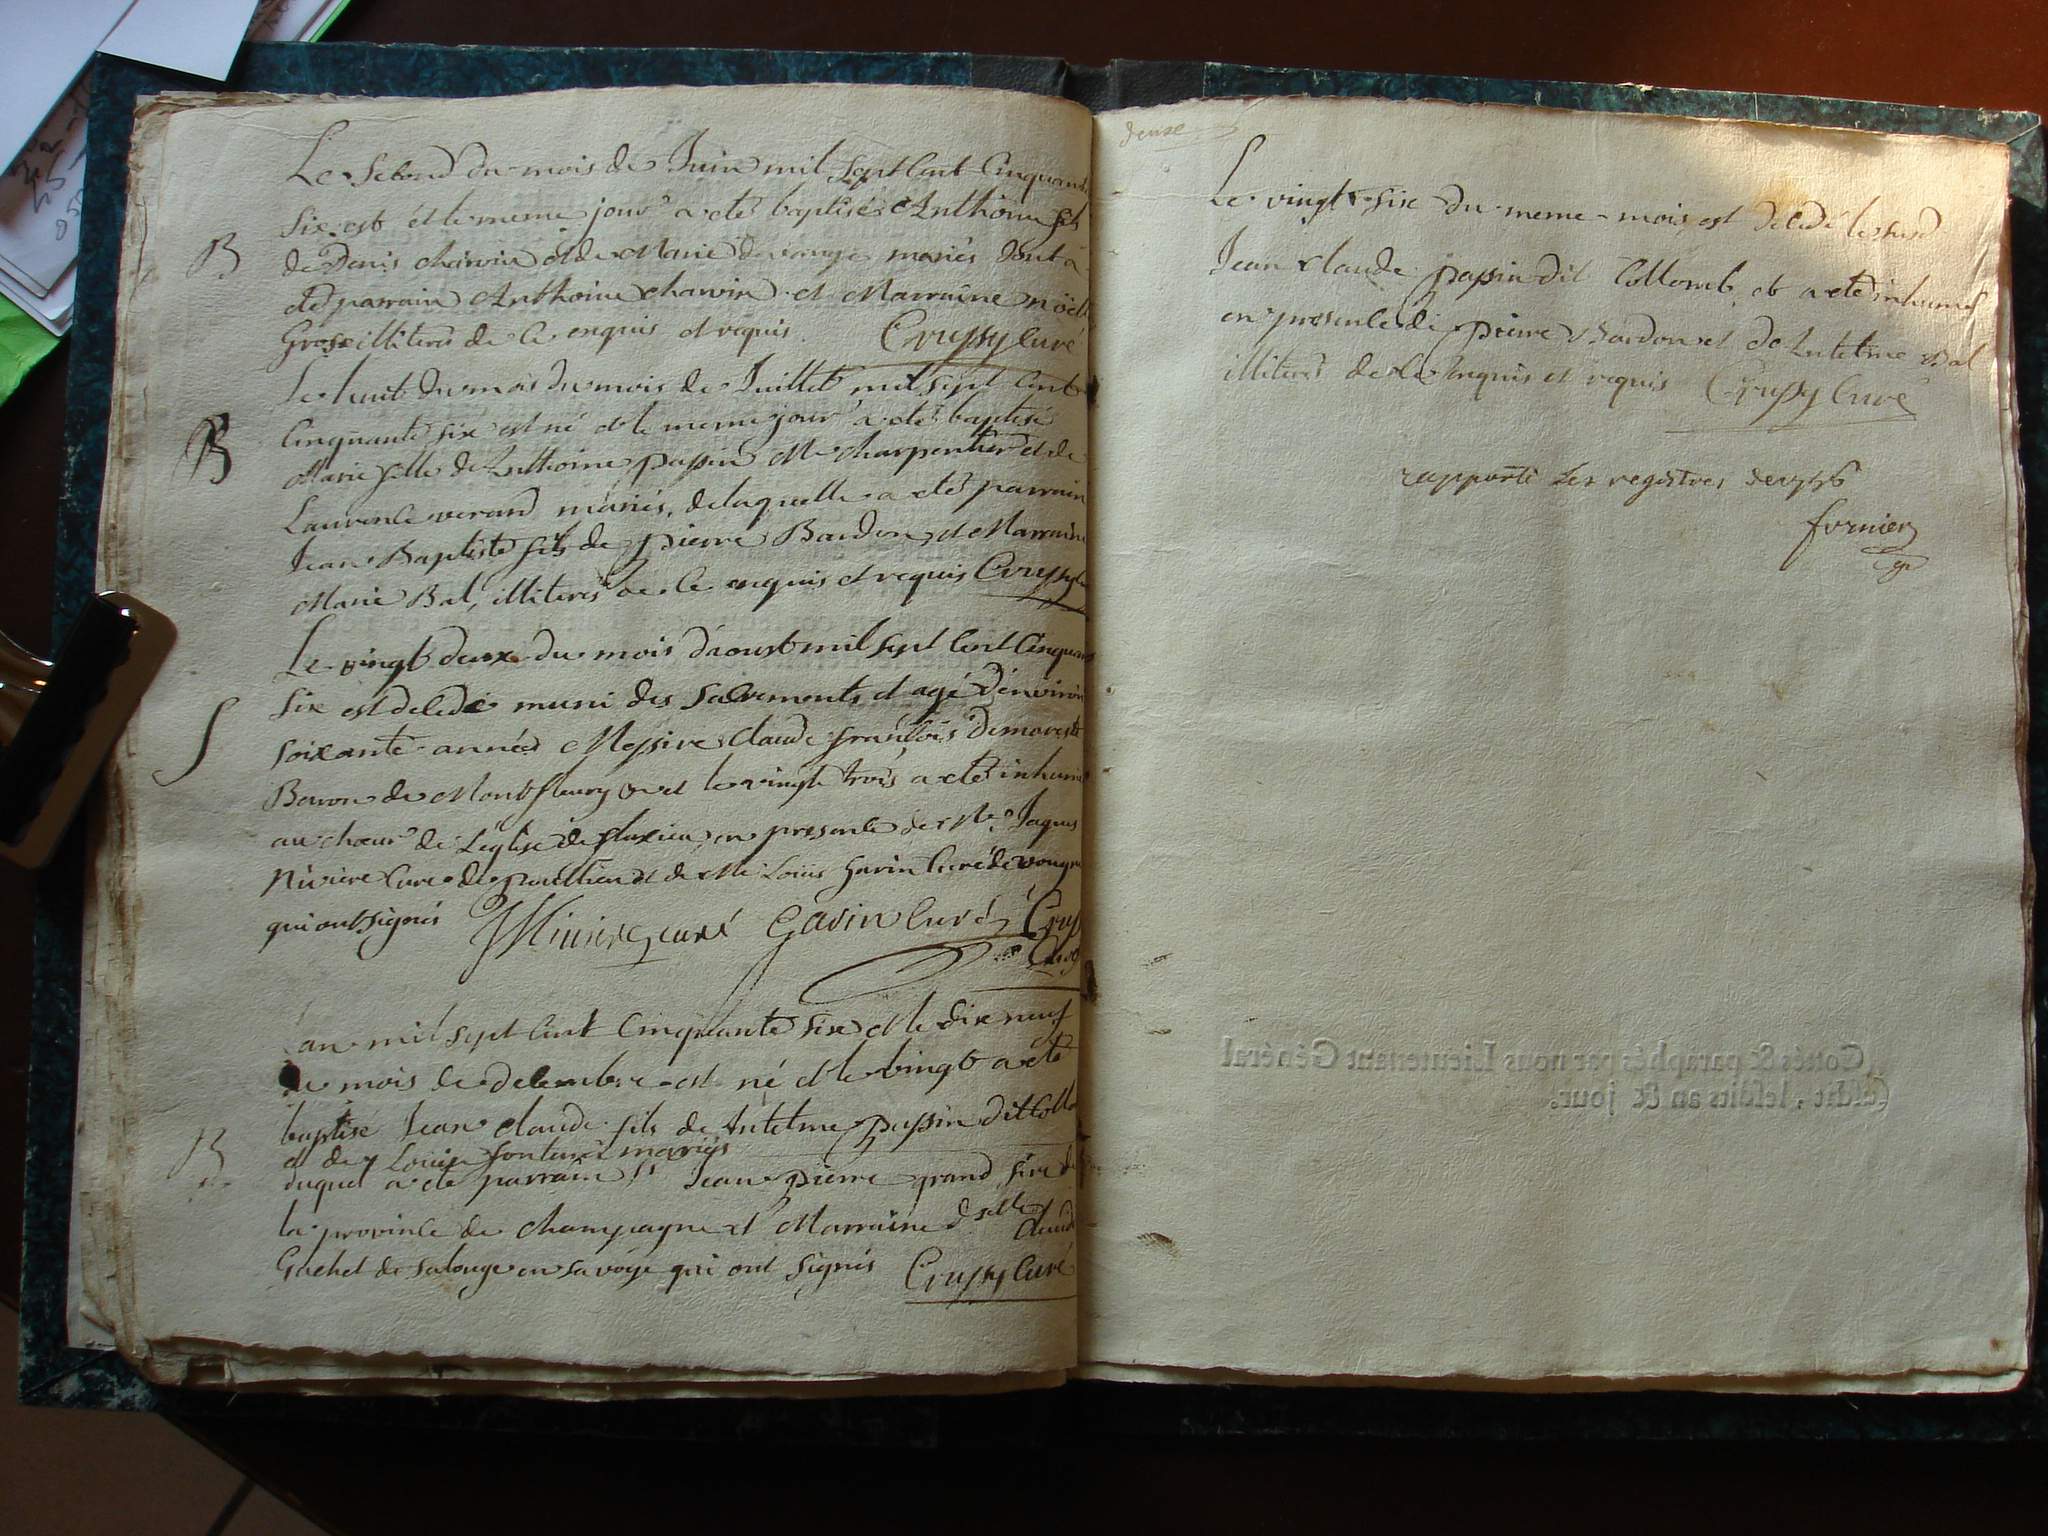 Le second du mois de Juin mil sept cent Cinquante
six est et le meme jour a eté baptisé Anthoine fils
B
de Denis charvin et de Marie mariés dont a
eté parrain Anthoine charvin et Marraine
Gros illiterés de ce enquis et requis. Crussy Curé
Le huit du mois du mois de Juillet mil sept cent
Cinquante six est né et le meme jour a eté baptisé
B
Marie fille de Anthoine passin Me charpentier et de
Laurence verand mariés, de laquelle a eté parrain
Jean Baptiste fils de pierre Bardon et Marraine
Marie Bal, illiterés de ce enquis et requis Crussy
Le vingt deux du mois d'aoust mil sept cent Cinquante
six est decedé muni des sacrements et agé d'environ
S
soixante années Messire claude françois Demareste
Baron de Montfleury et le vingt trois a eté inhumé
au chœur de l'église de flaxieu en presence de Me Jaques
Niviere Curé de pouillieu et de Me Louis Gavin Curé de vongne
qui ont signés J Niviere curé Gavin Curé Crussy
Curé
Lan mil sept cent Cinquante six et le dix neuf
de mois de decembre est né et le vingt a eté
baptisé Jean claude fils de Antelme passin dit Collo
B
et de Louise mariés
duquel a eté parrain Sr Jean pierre grand sire de
la province de champagne et Marraine dselle Claud
Gachet de salonge en savoye qui ont signés Crussy Curé
Le vingt six du meme mois est decedé le susd
Jean claude passin dit Collomb et a eté inhumé
en presence de pierre Bardon et de Antelme Bal
illiterés de ce enquis et requis Crussy Curé
rapporté les registres de 1756
fornier
Cottés & paraphés par nous Lieutenant Général
susdit, lesdits an & jour.